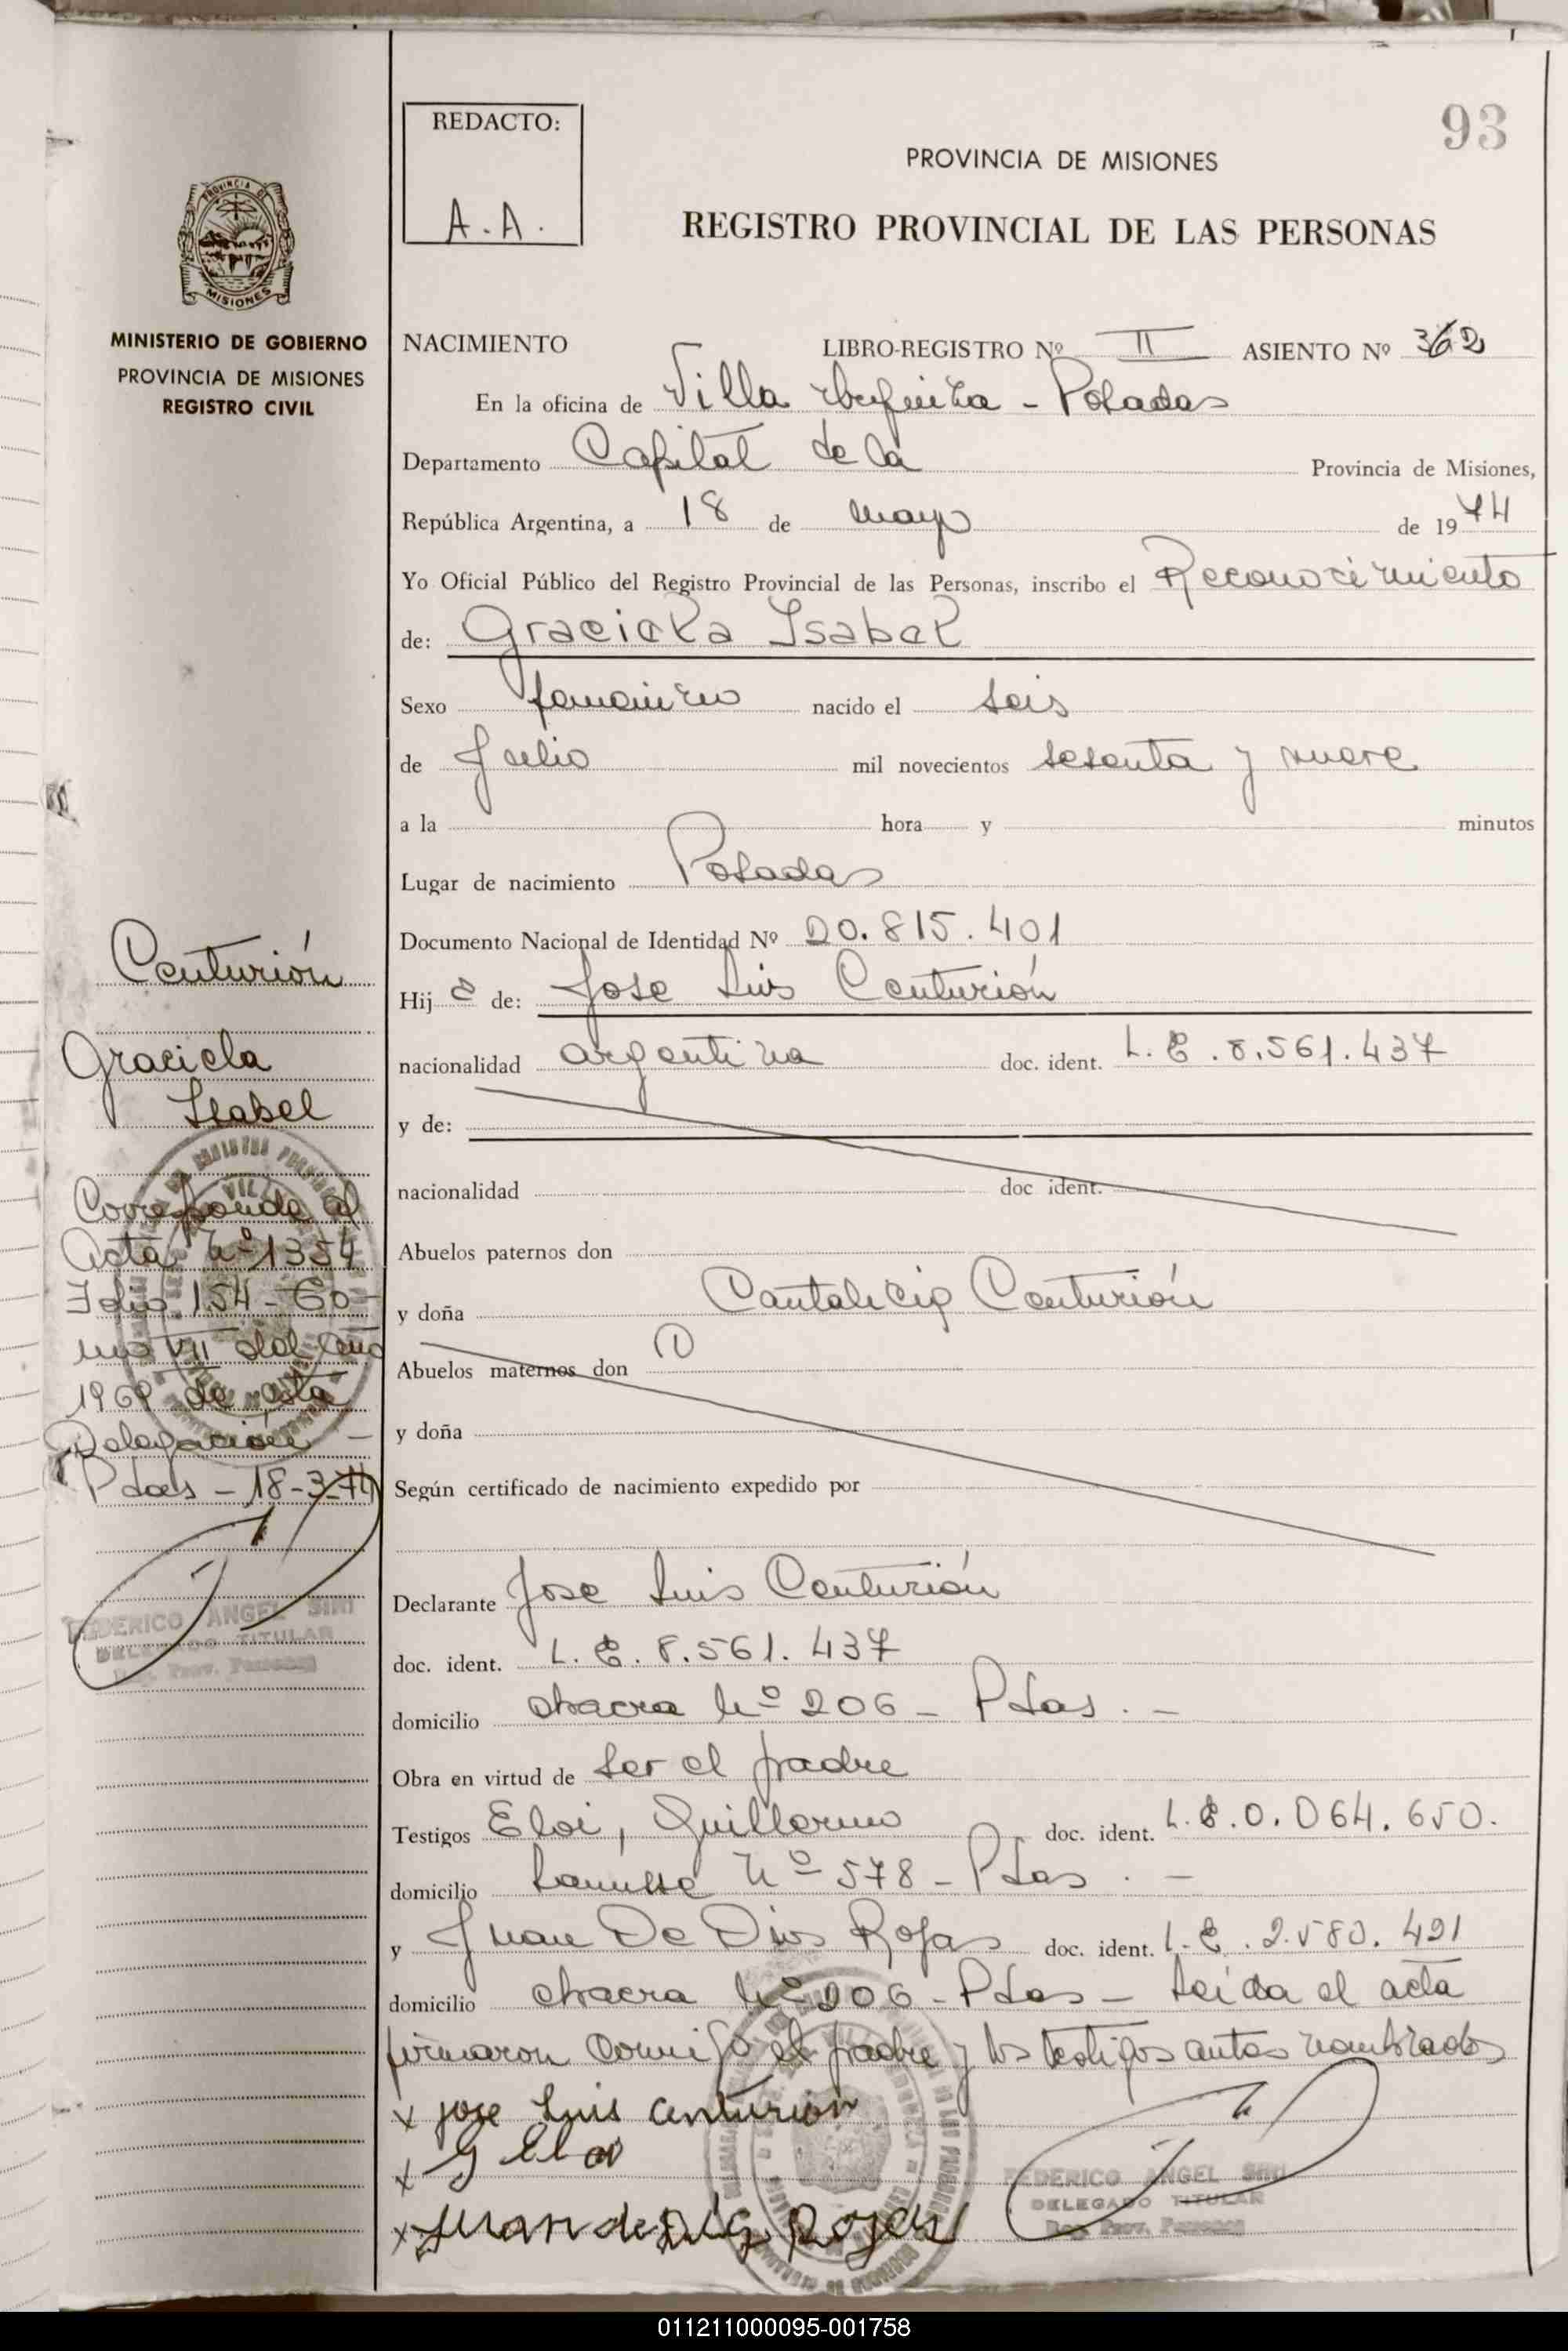 93
REDACTO:
A.A.
PROVINCIA DE MISIONES
REGISTRO PROVINCIAL DE LAS PERSONAS
PROVINCIA DE
MISIONES
MINISTERIO DE GOBIERNO
PROVINCIA DE MISIONES
REGISTRO CIVIL
NACIMIENTO LIBRO-REGISTRO Nº II ASIENTO Nº 362
En la oficina de Villa - Posadas
Departamento Capital de la Provincia de Misiones,
República Argentina, a 18 de mayo de 1974
Yo Oficial Público del Registro Provincial de las Personas, inscribo el Reconocimiento
de: Graciela Isabel
Sexo femenino nacido el seis
de Julio mil novecientos sesenta y nueve
a la hora y minutos
Lugar de nacimiento Posadas
Documento Nacional de Identidad Nº 20.815.401
Hija de: Jose Luis Centurión
nacionalidad argentina doc. ident. L.E.8.561.437
y de:
nacionalidad doc ident.
Abuelos paternos don
y doña Cantalicia Centurión
Abuelos maternos don (1)
y doña
Según certificado de nacimiento expedido por
Declarante Jose Luis Centurión
doc. ident. L.E. 8.561.437
domicilio chacra Nº 206 - Pdas. -
Obra en virtud de ser el padre
Testigos Eloi, Guillermo doc. ident. L.E.0.064.650.
domicilio Lanusse Nº 578 - Pdas. -
y Juan De Dios Rojas doc. ident. L.E.2.580.491
domicilio chacra Nº 206 - Pdas - Leida el acta
firmaron conmigo el padre y los testigos antes nombrados
x jose Luis centurion
x G Eloi
x Juan de Dios Rojas
FEDERICO ANGEL SIRI
DELEGADO TITULAR
Reg. Prov. Personas
Centurión
Graciela
Isabel
Corresponde al
Acta Nº 1354
Folio 154 - To-
mo VII del año
1969 de esta
Delegación -
Pdas - 18-3-74
FEDERICO ANGEL SIRI
DELEGADO TITULAR
Reg. Prov. Personas
011211000095-001758